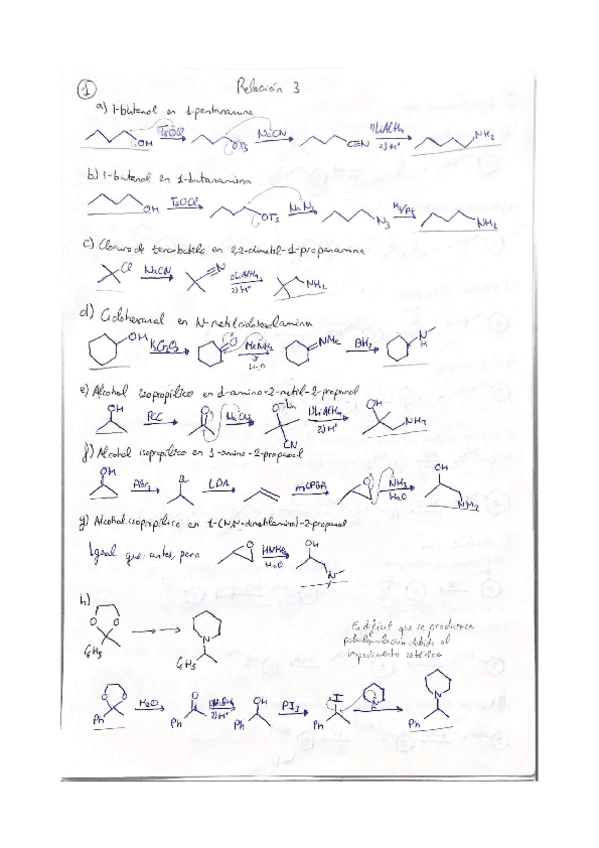 1 Relación 3
a) 1-butanol en 1-pentanamina
OH TsOCl OTs NaCN C≡N 1) LiAlH4 2) H+ NH2
b) 1-butanol en 1-butanamina
OH TsOCl OTs NaN3 N3 H2/Pt NH2
c) Cloruro de tercbutilo en 2,2-dimetil-1-propanamina
Cl NaCN N 1) LiAlH4 2) H+ NH2
d) Ciclohexanol en N-metilciclohexilamina
OH K2Cr2O7 O MeNH2 H2O NMe BH3 N H
e) Alcohol isopropílico en 1-amino-2-metil-2-propanol
OH PCC O NaCN CN 1) LiAlH4 2) H+ OH NH2
f) Alcohol isopropílico en 1-amino-2-propanol
OH PBr3 Br LDA mCPBA O NH3 H2O OH NH2
g) Alcohol isopropílico en 1-(N,N-dimetilamino)-2-propanol
Igual que antes, pero O HNMe2 H2O OH N
h)
O O C6H5 N C6H5
Es difícil que se produzca
polialquilación debido al
impedimento estérico
O O Ph H2O O Ph 2) H+ OH Ph PI3 I Ph N H N Ph